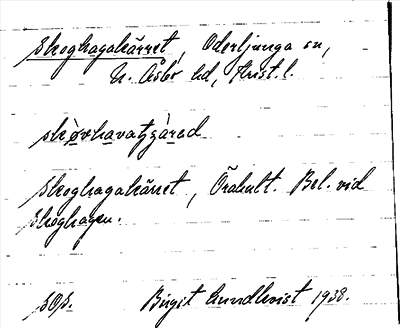 Skoghagakärret, Oderljunga sn,
N. Åsbo hd, Krist. l.
Skoghagakärret, Örahult. Bel. vid
Skoghagen.
Birgit Lundkvist 1938.